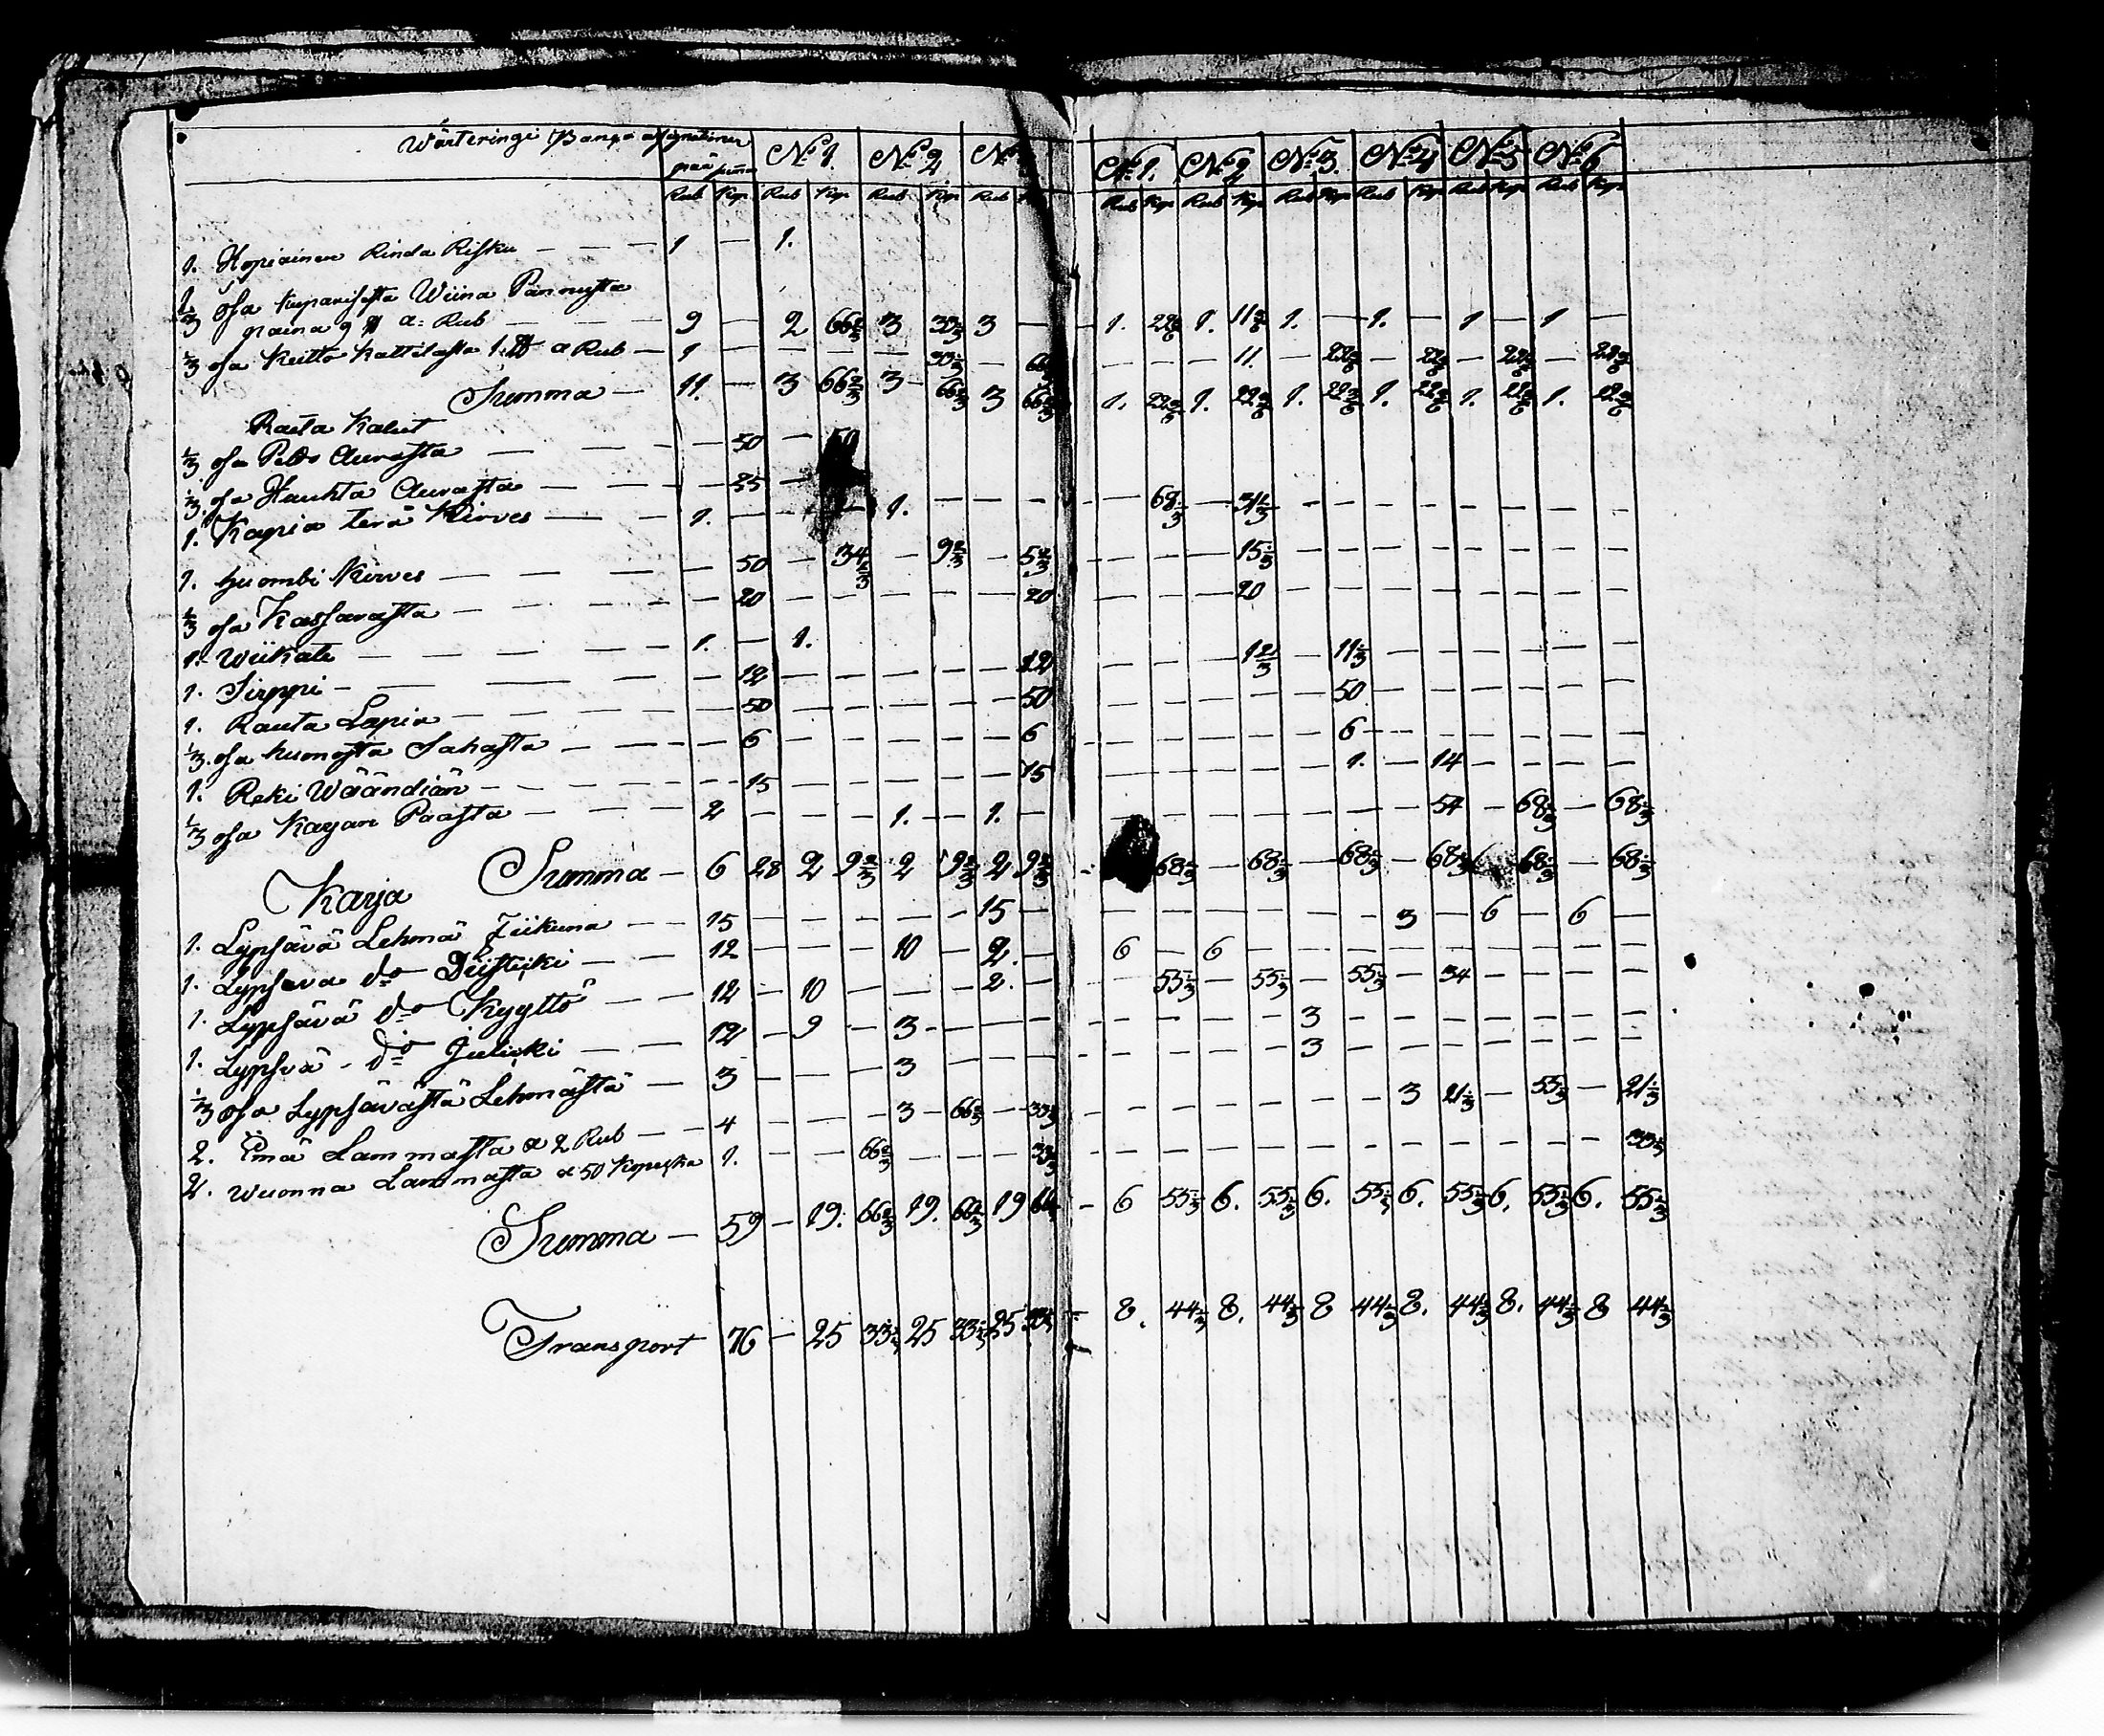 Wärteringi Banco assignationer
pää summa No 1. No 2 No 3 No 1. No 2 No 3. No 4 No 5 No 6
Rub Kop Rub Kop Rub Kop Rub Rub Kop Rub Kop Rub Kop Rub Kop Rub Kop Rub Kop
1. Hopiainen Rinda Risku — — — 1 — 1.
1/3 osa kuparisesta Wiina Pannusta
paina 9 ℔ a: Rub — — — 9 — 2 66 2/3 3 33 1/3 3 — — 1. 22 2/6 1. 11 2/6 1. — 1. — 1 — 1 —
1/3 osa Keitto Kattilasta 1 ℔ a Rub — 1 — — — — 33 1/3 — 66 2/3 — — — 11. — 22 2/6 — 22 2/6 — 22 2/6 — 22 2/6
Summa — 11. — 3 66 2/3 3 — 66 2/3 3 66 2/3 1. 22 2/6 1. 22 2/6 1. 22 2/6 1. 22 2/6 1. 22 2/6 1. 22 2/6
Rauta Kalut
1/3 osa Peldo Aurasta — — — — 50 — 50
1/3 osa Hauhta Aurasta — — — — 25 —
1. Kapia terä Kirves — — 1. — — — 1. — — — — 68 1/3 — 31 1/3 — — — — — — — —
1. huombi Kirves — — — — 50 — 34 2/3 — 9 2/3 — 5 2/3 — — — 15 1/3 — — — — — — — —
1/3 osa Kassarasta — — — — 20 — — — — — 20 — — — 20
1. Wiikate — — — — 1. — 1.
1. Sirppi — — — — — 12 — — — — — 12 — — — 12/3 — 11 1/3 — — — — — —
1. Rauta Lapia — — — — — 50 — — — — — 50 — — — — — 50 — — — — — —
1/3 osa huonosta Sahasta — — — — 6 — — — — — 6 — — — — — 6 — — — — — —
1. Reki Wäändiän — — — — — 15 — — — — — 15 — — — — — 1. — 14 — — — —
1/3 osa Kayan Paasta — — 2 — — — 1. — 1. — — — — — — — — 54 — 68 1/3 — 68 1/3
Summa — 6 28 2 9 2/3 2 9 2/3 2 9 2/3 — 68 1/3 — 68 1/3 — 68 1/3 — 68 1/3 — 68 1/3 — 68 1/3
Karja
1. Lypsävä Lehmä — — 15 — — — — — 15 — — — — — — — 3 — 6 — 6 —
1. Lypsävä do — — 12 — — — 10 — 2. — 6 — 6 — — — — — — — — —
1. Lypsävä do Kyyttö — — 12 — 10 — — — 2. — — 55 1/3 — 55 1/3 — 55 1/3 — 34 — — — —
1. Lypsvä - do — — 12 — 9 — 3 — — — — — — — 3 — — — — — — —
1/3 osa Lypsävästä Lehmästä — 3 — — — 3 — — — — — — — 3 — — — — — — —
2. Emä Lammasta a 2 Rub — — 4 — — — 3 — 66 2/3 — 33 1/3 — — — — — — 3 21 1/3 — 55 1/3 — 21 1/3
2. Wuonna Lammasta a 50 Kopeska 1. — — 66 2/3 — — — 33 1/3 — — — — — — — — — — — 33 1/3
Summa — 59 — 19. 66 2/3 19. 66 2/3 19 66 2/3 — 6 55 1/3 6. 55 1/3 6. 55 1/3 6. 55 1/3 6. 55 1/3 6. 55 1/3
Transport 76 — 25 33 1/3 25 33 1/3 25 33 1/3 — 8. 44 1/3 8. 44 1/3 8 44 1/3 8. 44 1/3 8. 44 1/3 8 44 1/3